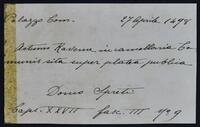 Palazzo Com. 27 Aprile 1498
Actum Ravenne in cancellaria Co
munis sita super platea publica
Domo Spreti
Caps. XXVII fasc. III n° 9